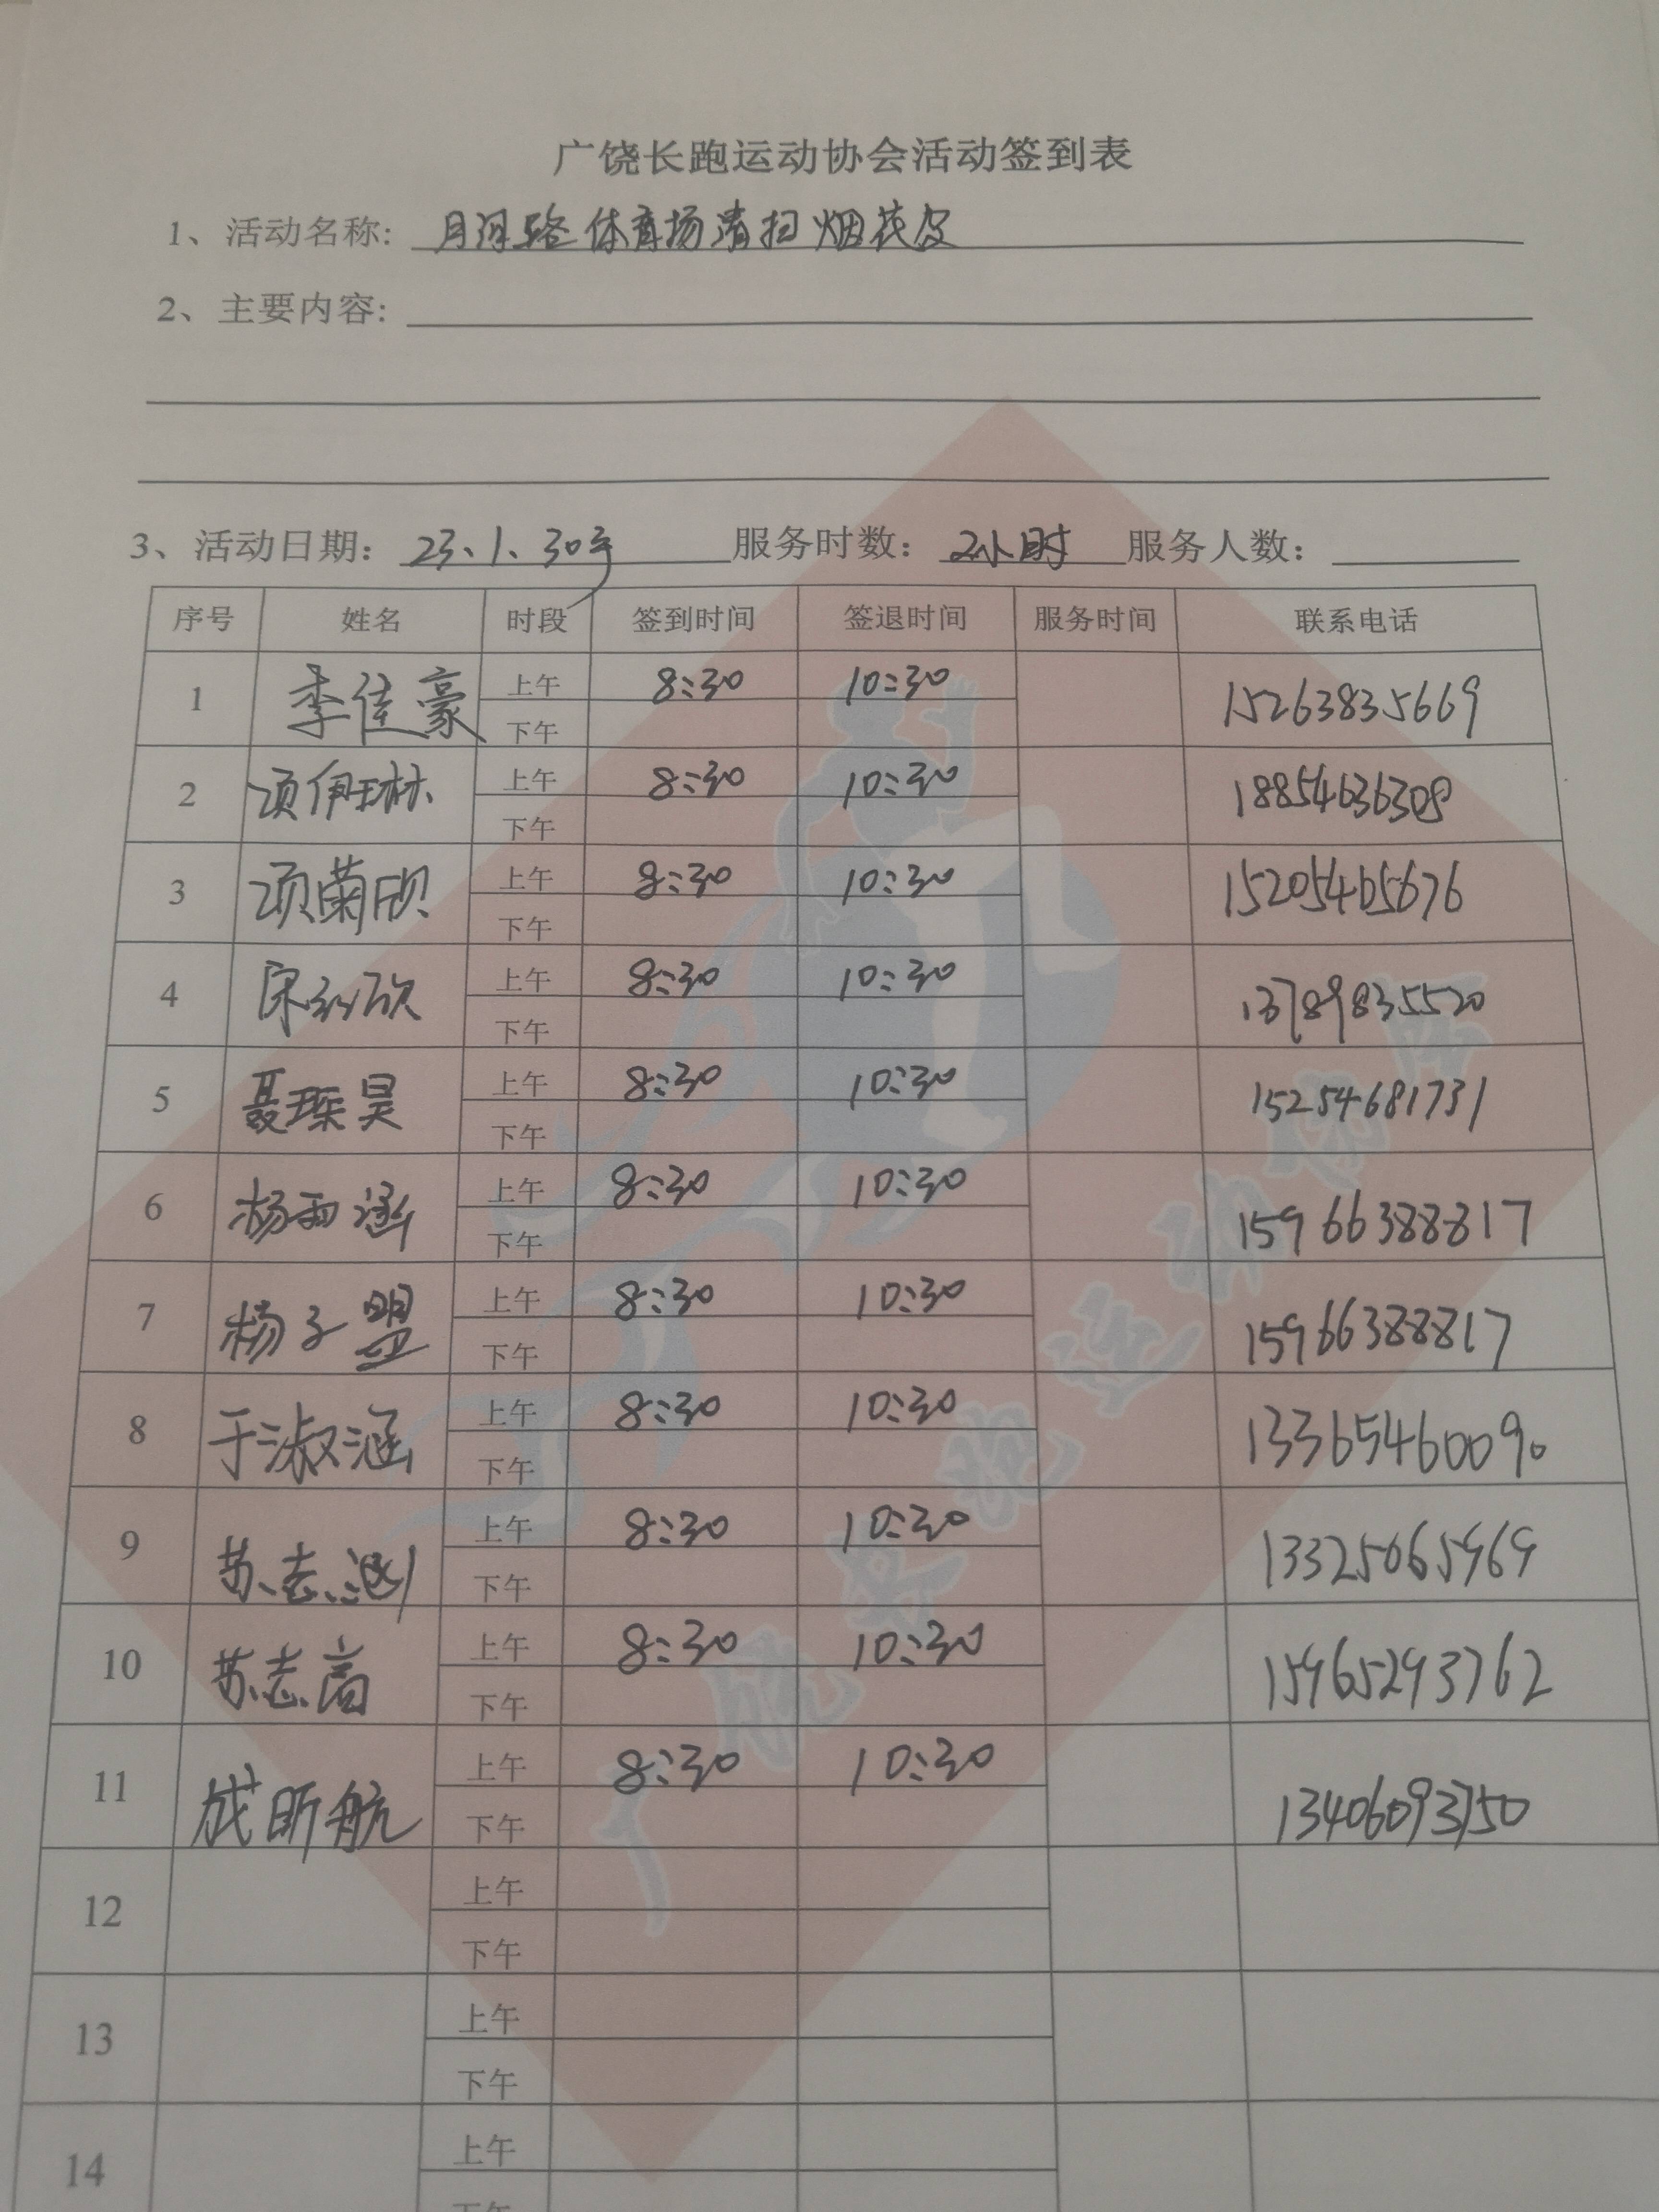 广饶长跑运动协会活动签到表
1、活动名称: 月河路体育场清扫烟花皮
2、主要内容:
3、活动日期: 23、1、30号 服务时数: 2小时 服务人数:
序号 姓名 时段 签到时间 签退时间 服务时间 联系电话
1 李佳豪 上午 8:30 10:30 15263835669
下午
2 项伊琳 上午 8:30 10:30 18854636308
下午
3 项菊欣 上午 8:30 10:30 15205465676
下午
4 宋 上午 8:30 10:30 13789835520
下午
5 聂琛昊 上午 8:30 10:30 15254681731
下午
6 杨雨涵 上午 8:30 10:30 15966388817
下午
7 杨子盟 上午 8:30 10:30 15966388817
下午
8 于淑涵 上午 8:30 10:30 13365460090
下午
9 苏志 上午 8:30 10:30 13325065969
下午
10 苏志高 上午 8:30 10:30 15965293762
下午
11 成昕航 上午 8:30 10:30 13406093750
下午
12 上午
下午
13 上午
下午
14 上午
下午
广饶长跑运动协会